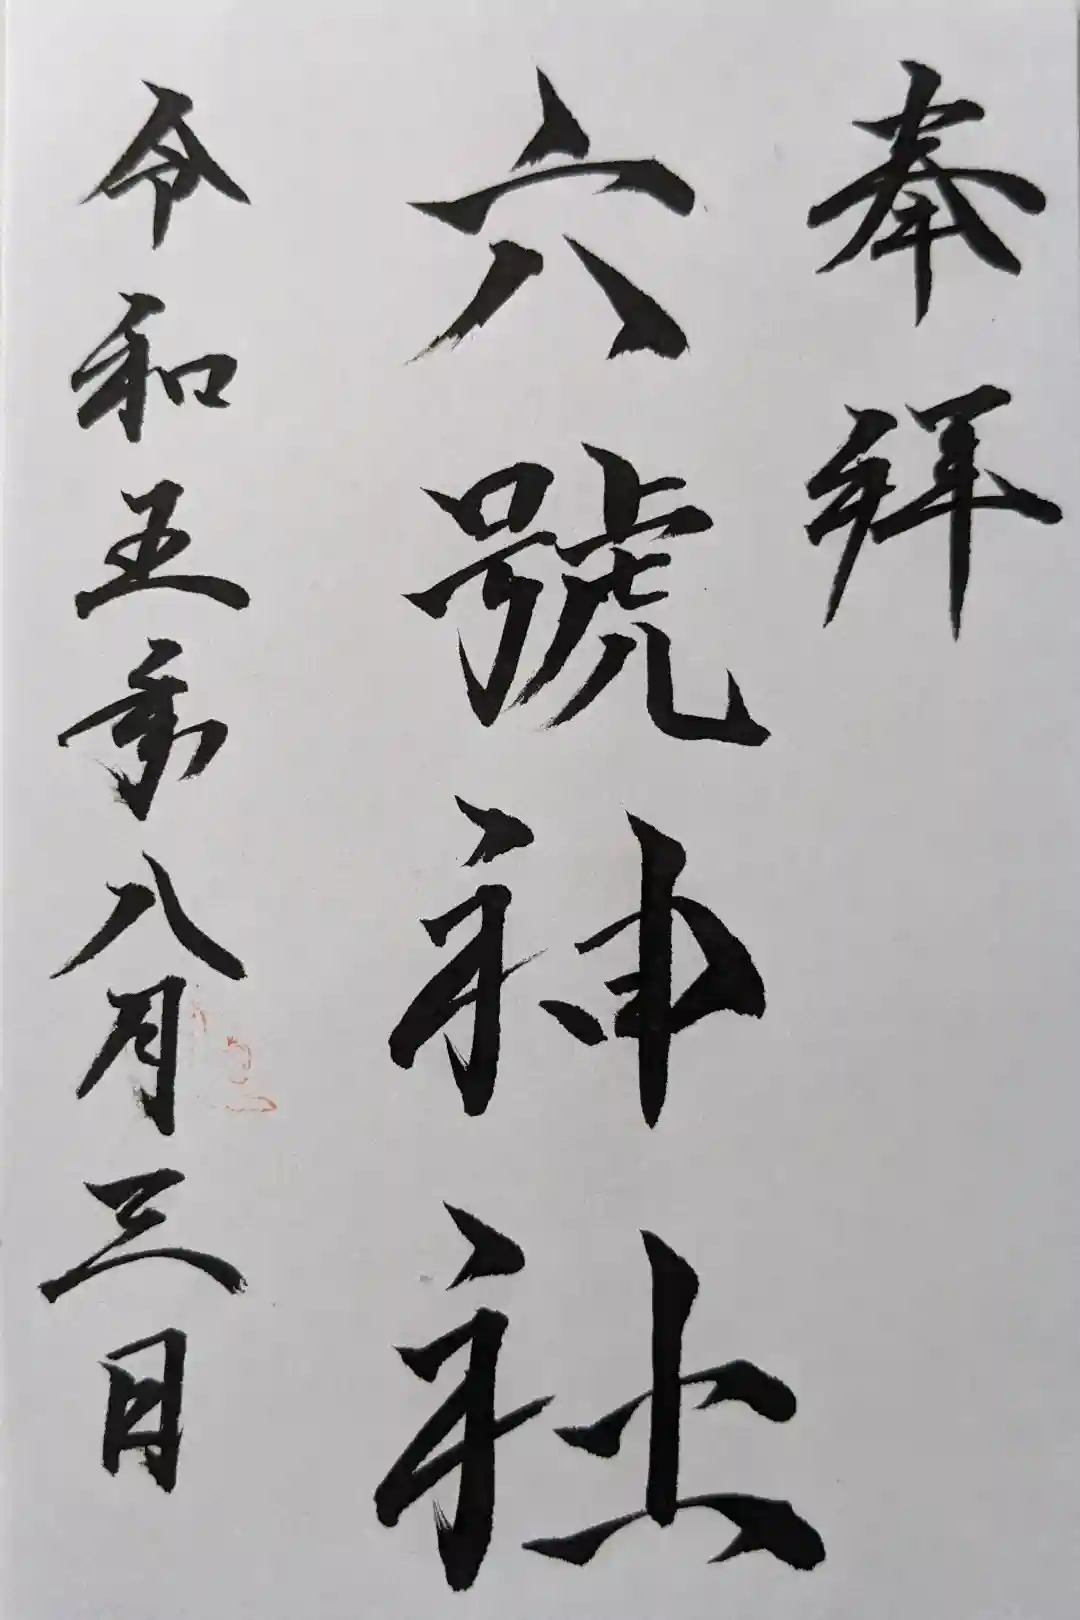 奉拜
六號神社
令和五季八月三日